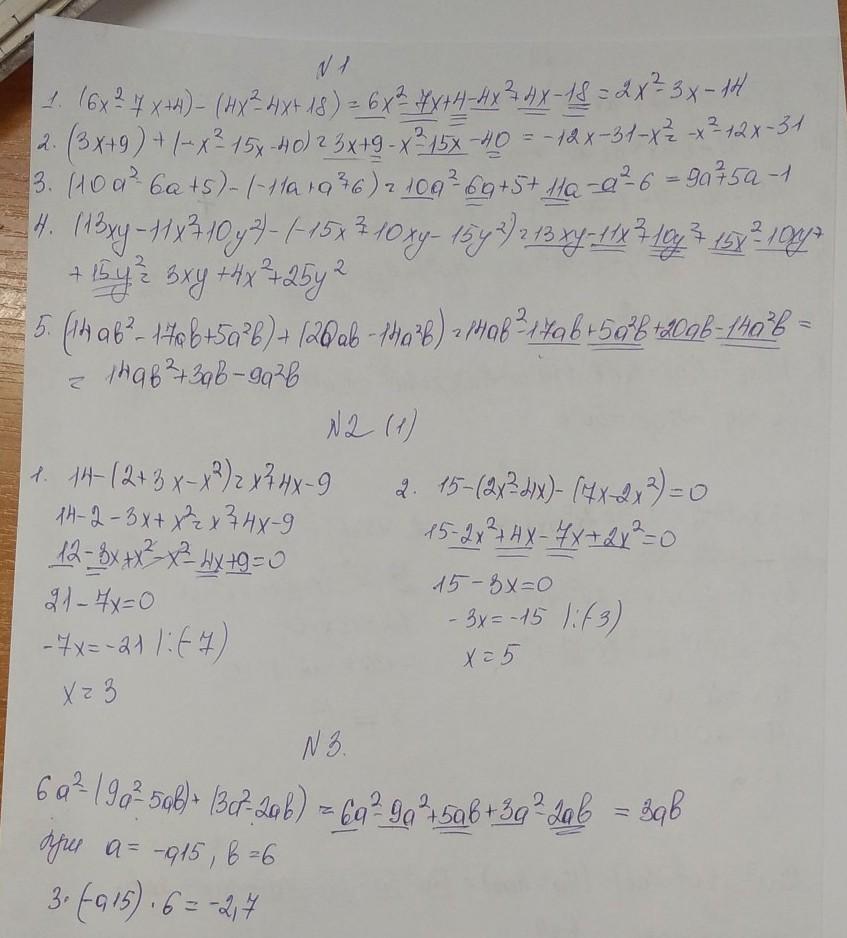 N1
1. (6x²-7x+4)-(4x²-4x+18)=6x²-7x+4-4x²+4x-18=2x²-3x-14
2. (3x+9)+(-x²-15x-40)=3x+9-x²-15x-40=-12x-31-x²=-x²-12x-31
3. (10a²-6a+5)-(-11a+a²+6)=10a²-6a+5+11a-a²-6=9a²+5a-1
4. (13xy-11x²+10y²)-(-15x²+10xy-15y²)=13xy-11x²+10y²+15x²-10xy+
+15y²=3xy+4x²+25y²
5. (14ab²-17ab+5a²b)+(20ab-14a²b)=14ab²-17ab+5a²b+20ab-14a²b=
=14ab²+3ab-9a²b
N2 (1)
1. 14-(2+3x-x²)=x²+4x-9
14-2-3x+x²=x²+4x-9
12-3x+x²-x²-4x+9=0
21-7x=0
-7x=-21 |:(-7)
x=3
2. 15-(2x²-4x)-(7x-2x²)=0
15-2x²+4x-7x+2x²=0
15-3x=0
-3x=-15 |:(-3)
x=5
N3.
6a²-(9a²-5ab)+(3a²-2ab)=6a²-9a²+5ab+3a²-2ab=3ab
при a=-0,15, b=6
3·(-0,15)·6=-2,7